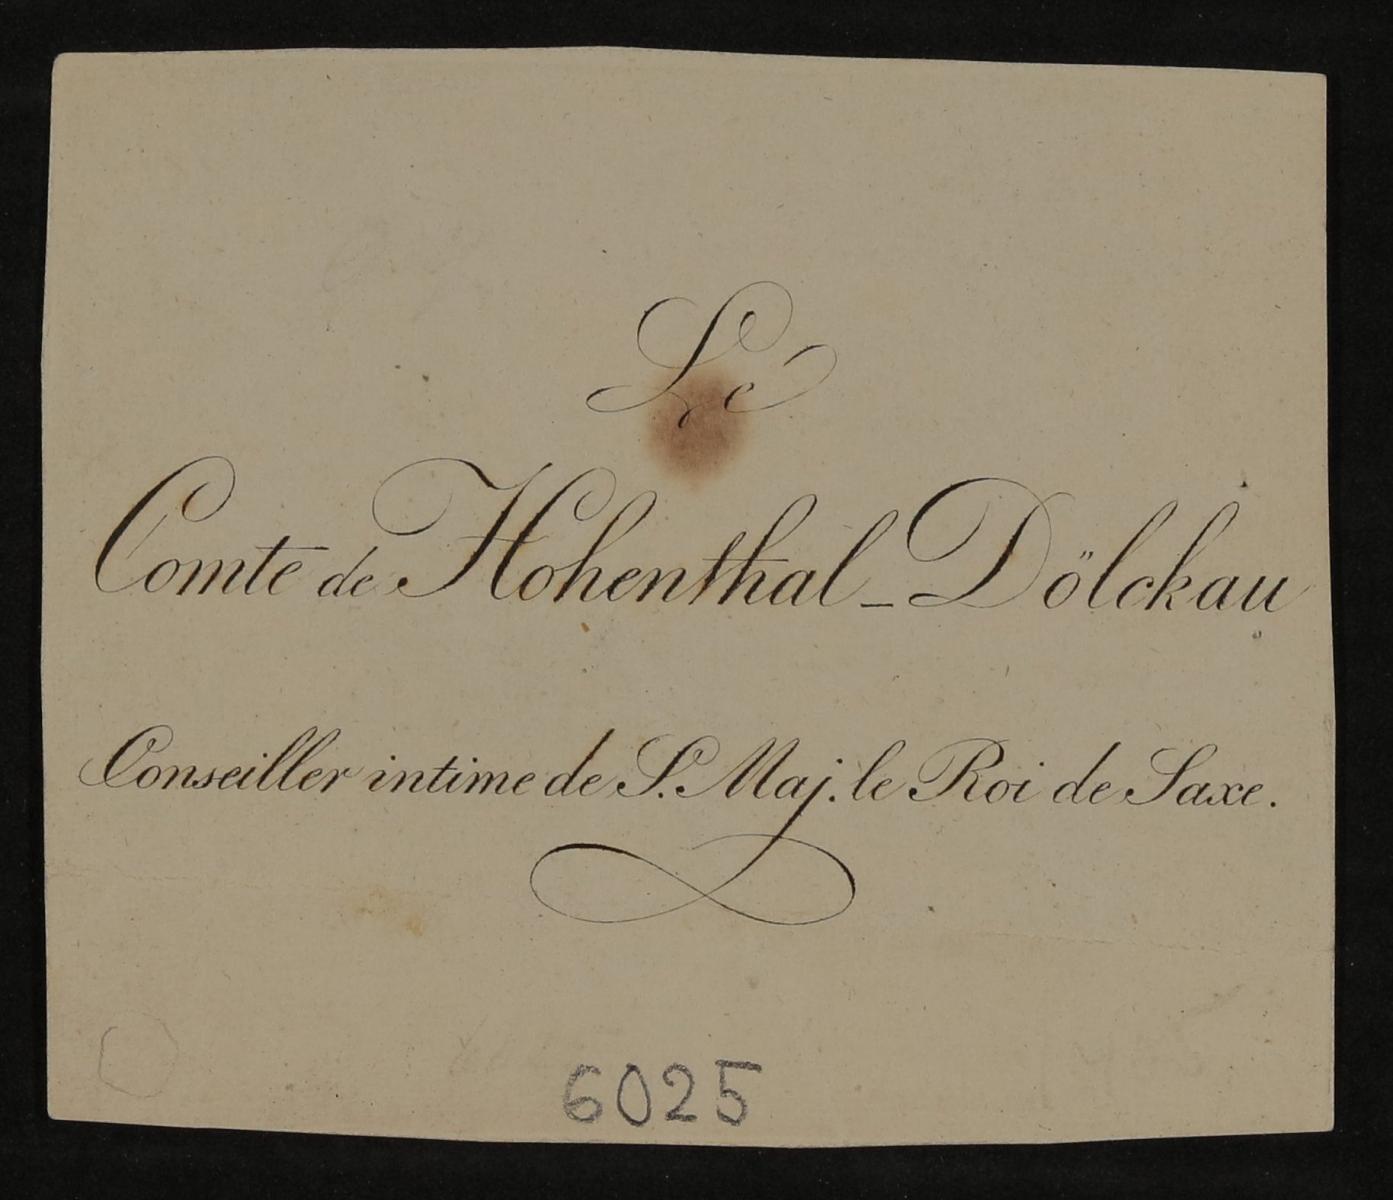 Le
Comte de Hohenthal-Dölckau
Conseiller intime de S. Maj. le Roi de Saxe.
6025